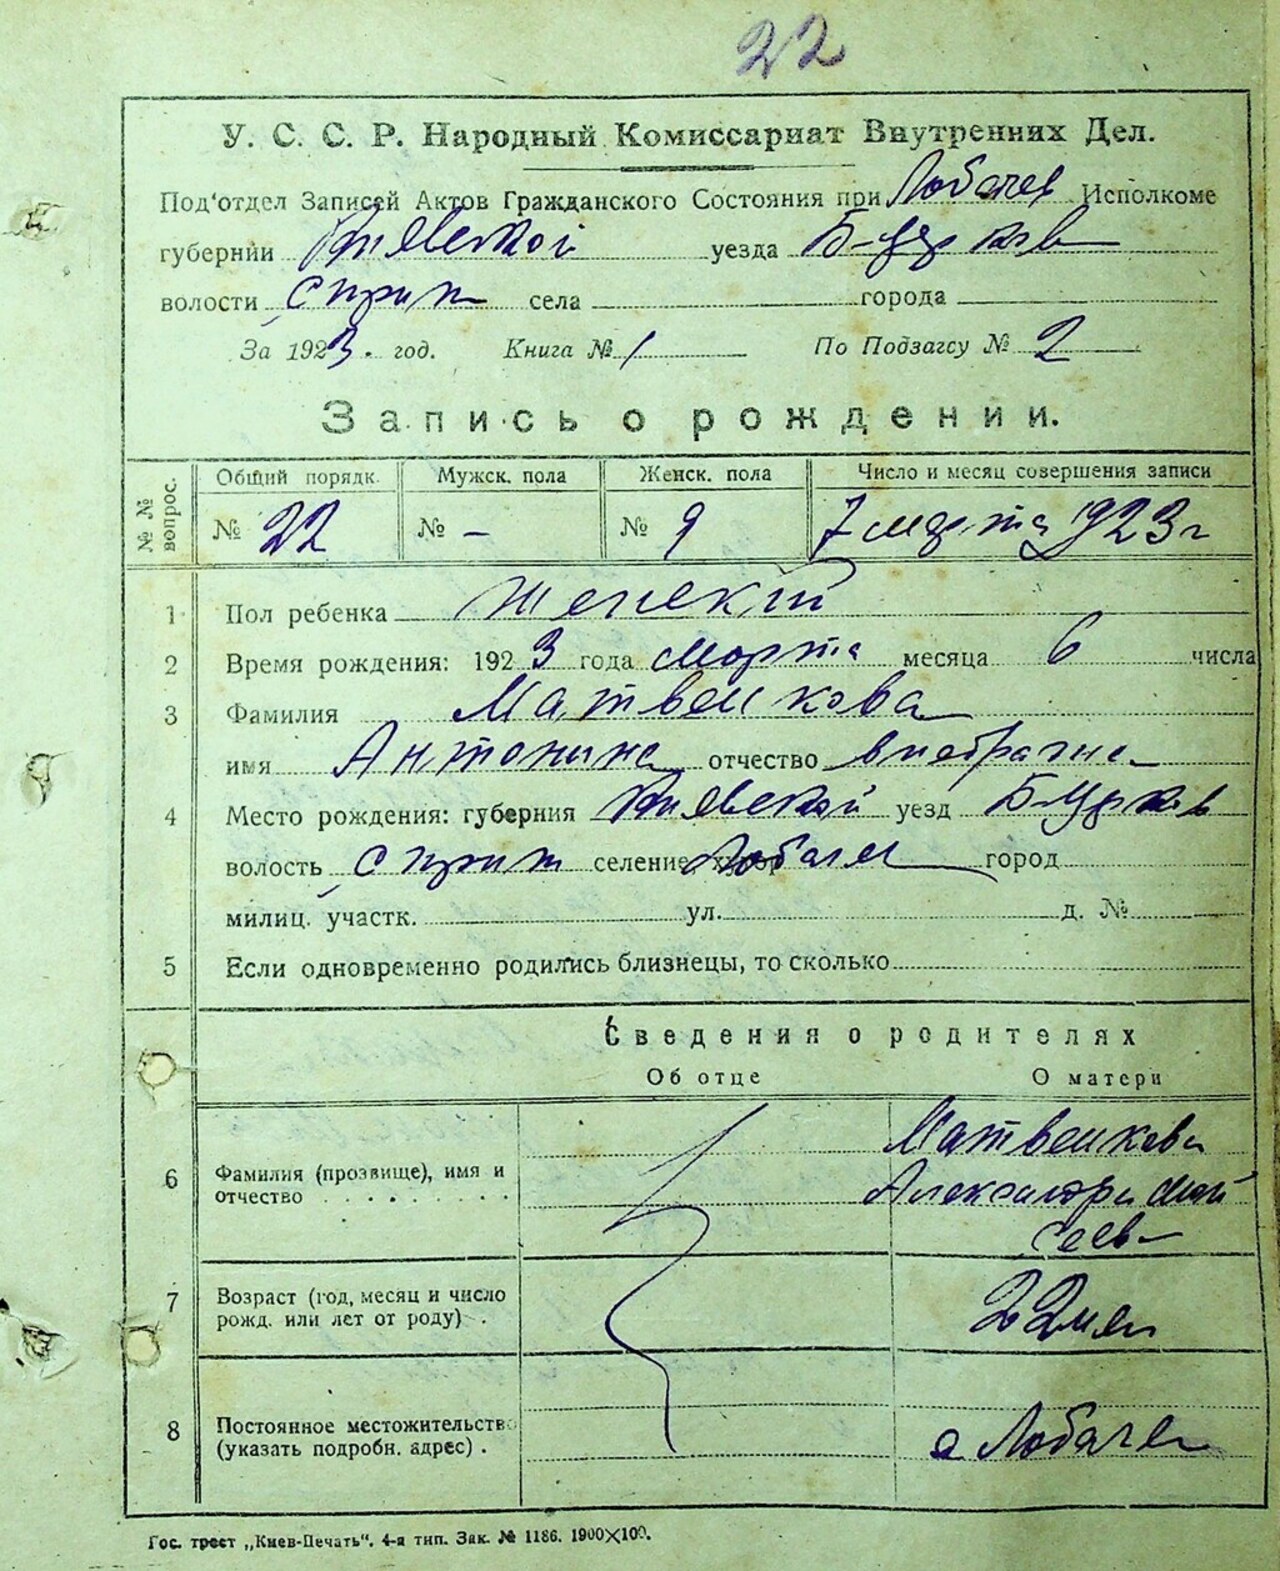 22
У. С. С. Р. Народный Комиссариат Внутренних Дел.
Под'отдел Записей Актов Гражданского Состояния при Лобачев Исполкоме
губернии Киевской уезда Б-Церков
волости Скрип села города
За 1923. год. Книга № 1 По Подзагсу № 2
Запись о рождении.
№ № вопрос. Общий порядк. Мужск. пола Женск. пола Число и месяц совершения записи
№ 22 № - № 9 7 марта 1923 г
1 Пол ребенка женский
2 Время рождения: 1923 года Марта месяца 6 числа
3 Фамилия Матвейкова
имя Антонина отчество внебрачна
4 Место рождения: губерния Киевской уезд Б-Церков
волость Скрип селение, хутор Лобачев город
милиц. участк. ул. д. №
5 Если одновременно родились близнецы, то сколько
Сведения о родителях
Об отце О матери
6 Фамилия (прозвище), имя и отчество Матвейкова
Александра Мой
сеев-
7 Возраст (год, месяц и число рожд. или лет от роду) . 22
8 Постоянное местожительство (указать подробн. адрес) . с Лобачев
Гос. трест „Киев-Печать". 4-я тип. Зак. № 1186. 1900×100.